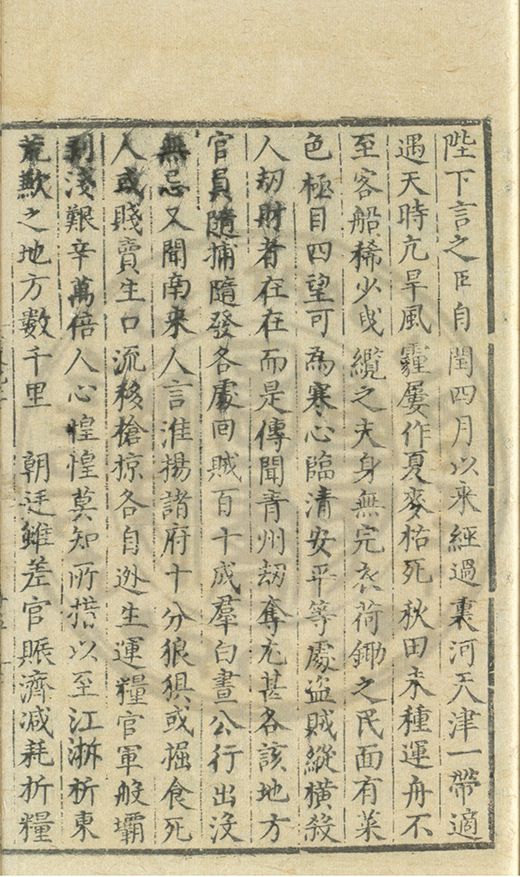 陛下言之臣自閏四月以來經過裏河天津一帶適
遇天時亢旱風霾屢作夏麥枯死秋田未種運舟不
至客船稀少曵纜之夫身無完衣荷鋤之民面有菜
色極目四望可為寒心臨清安平等處盗賊縱橫殺
人劫財者在在而是傳聞青州劫奪尤甚各該地方
官員隨捕隨發各處回賊百十成羣白晝公行出没
無忌又聞南来人言淮揚諸府十分狼狽或掘食死
人或賤賣生口流移搶掠各自迯生運糧官軍般壩
剥淺艱辛萬倍人心惶惶莫知所措以至江浙折東
荒歉之地方數千里 朝廷雖差官賑濟减耗折糧